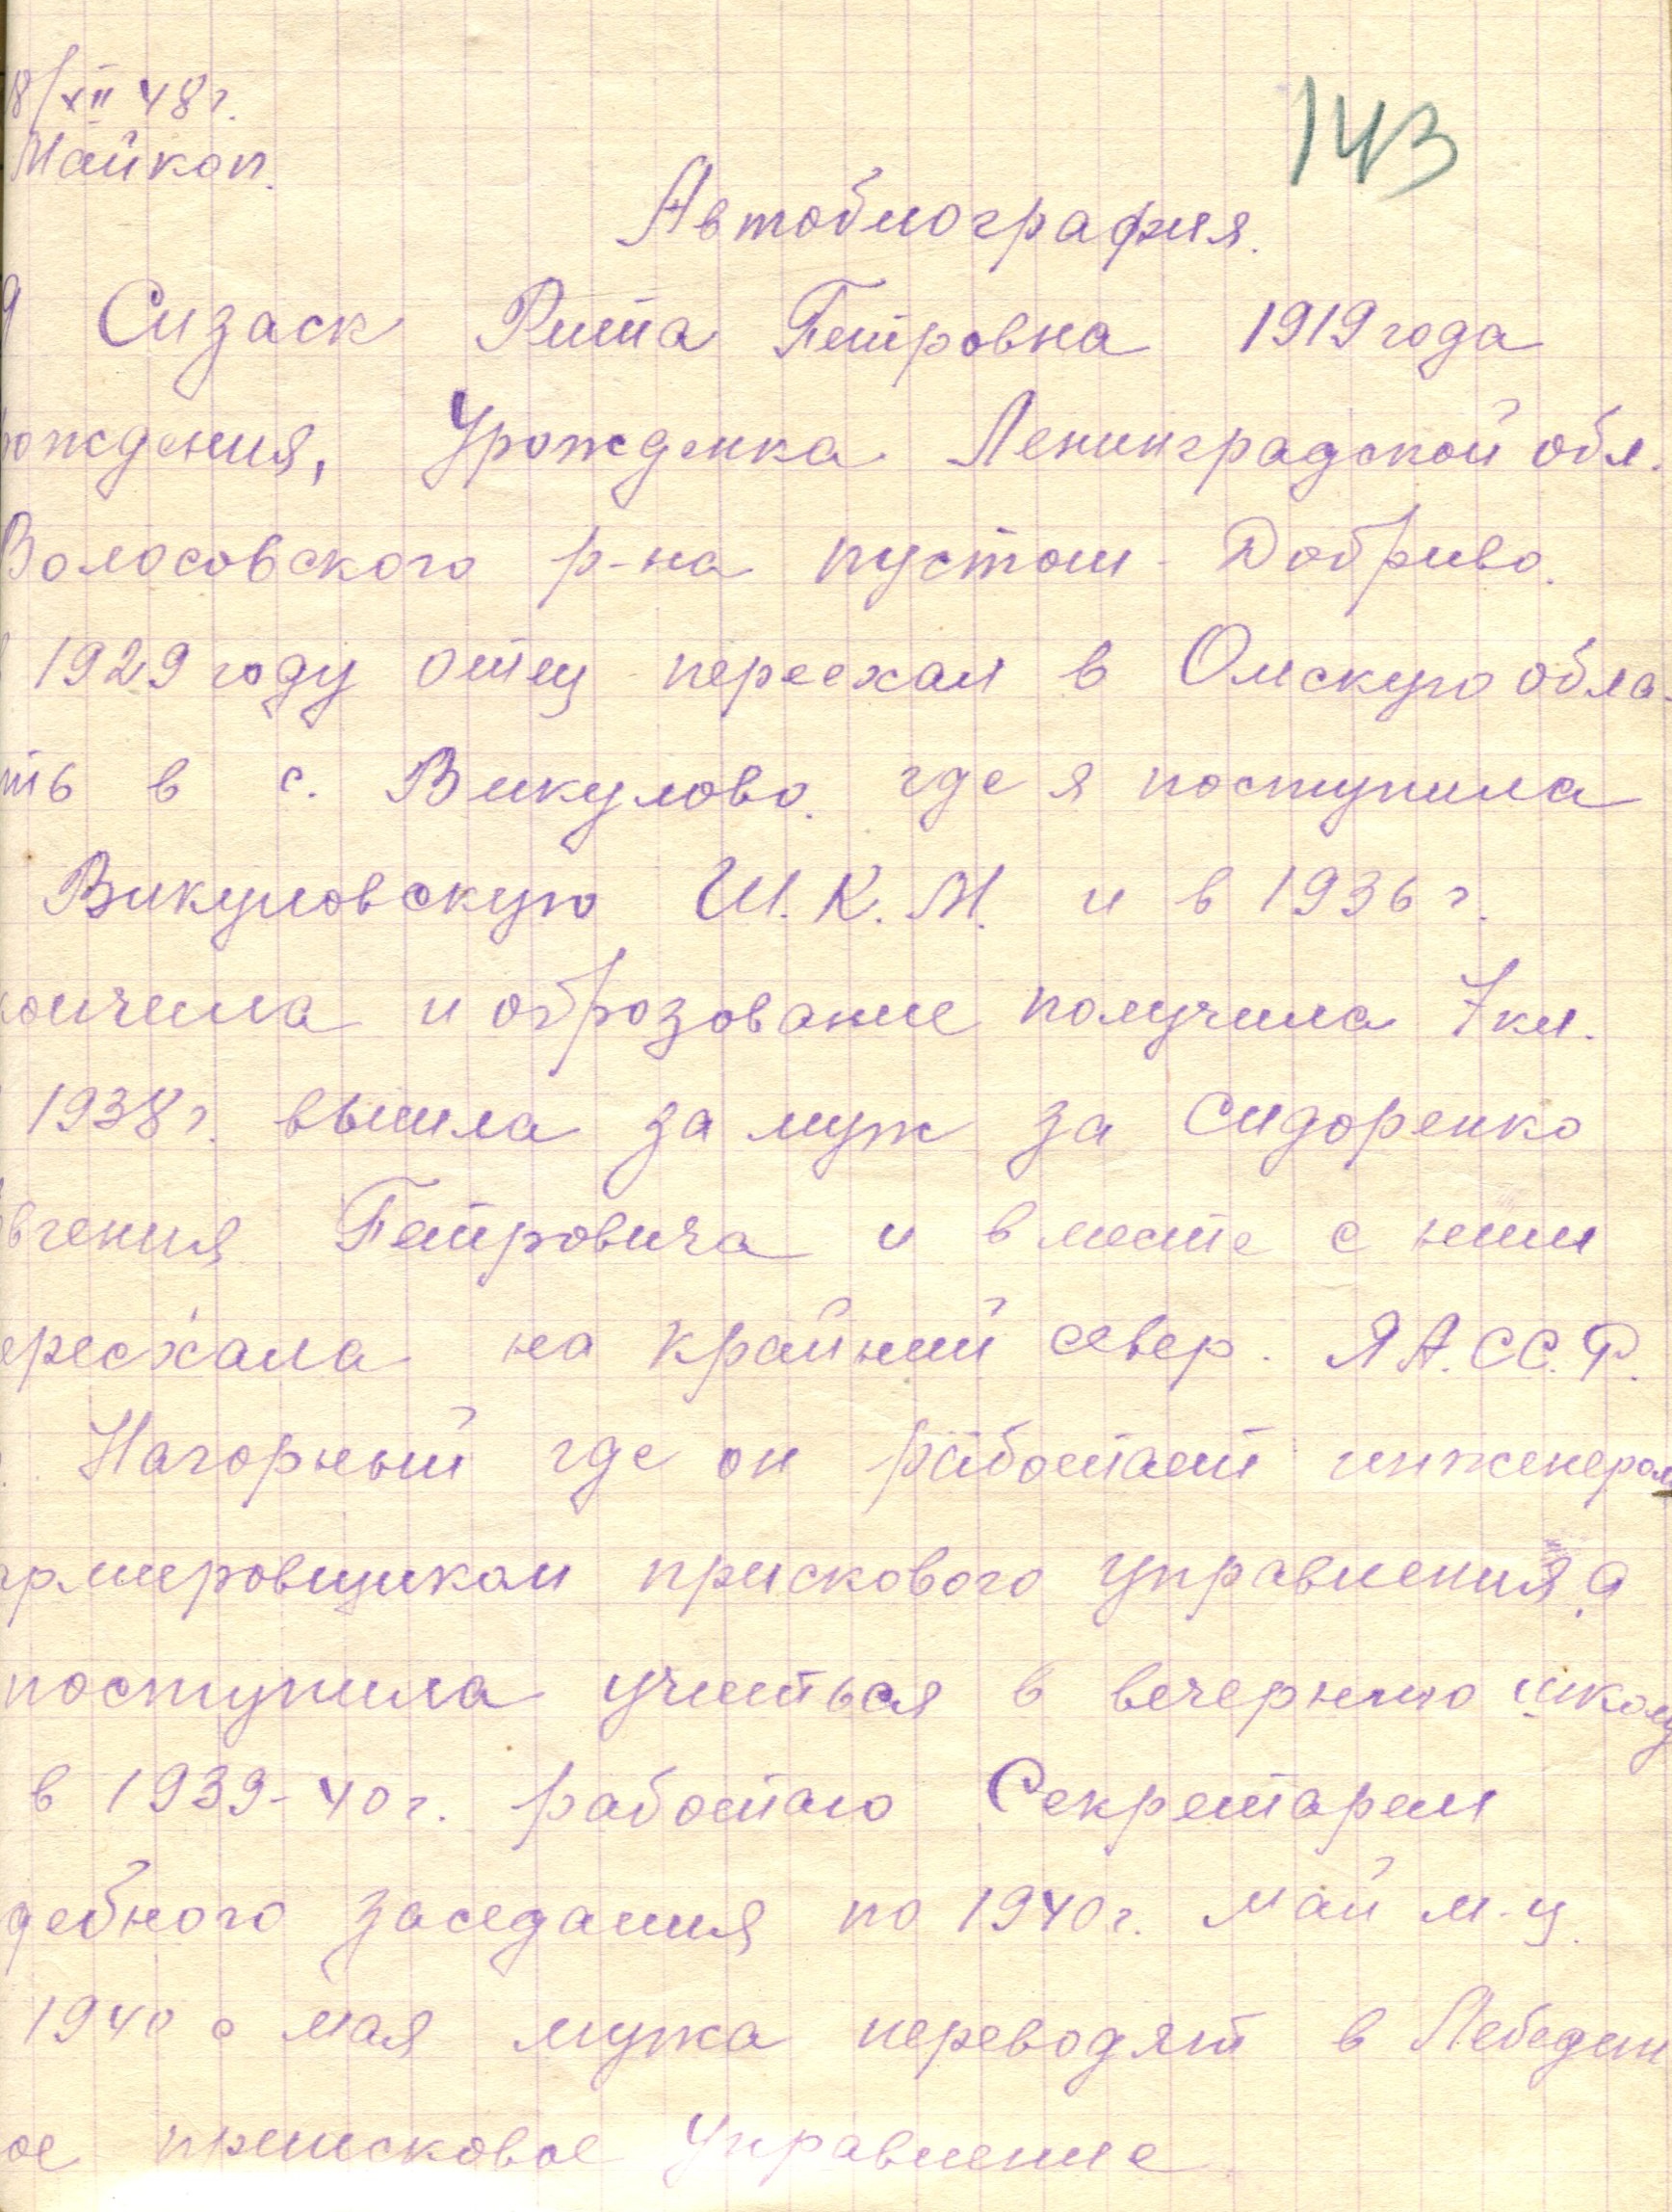 8/XII 48г.
143
Майкоп.
Автобиография.
Я Сизаск Рита Петровна 1919 года
рождения, Урожденка Ленинградской обл.
Волосовского р-на пустош - Добриво.
1929 году отец переехал в Омскую обла-
ть в с. Викулово. где я поступила
Викуловскую Ш.К.М. и в 1936 г.
кончила и оброзование получила 7 кл.
1938 г. вышла за муж за Сидоренко
вгения Петровича и вместе с ним
ереехала на крайний север. Я А.СС.Р.
Нагорный где он работает инженером
рмировщиком прискового управления, я
поступила учиться в вечернюю школу
в 1939-40 г. работаю Секретарем
дебного заседания по 1940 г. май м-ц.
1940 с мая мужа переводят в Лебедин
ое приисковое Управление